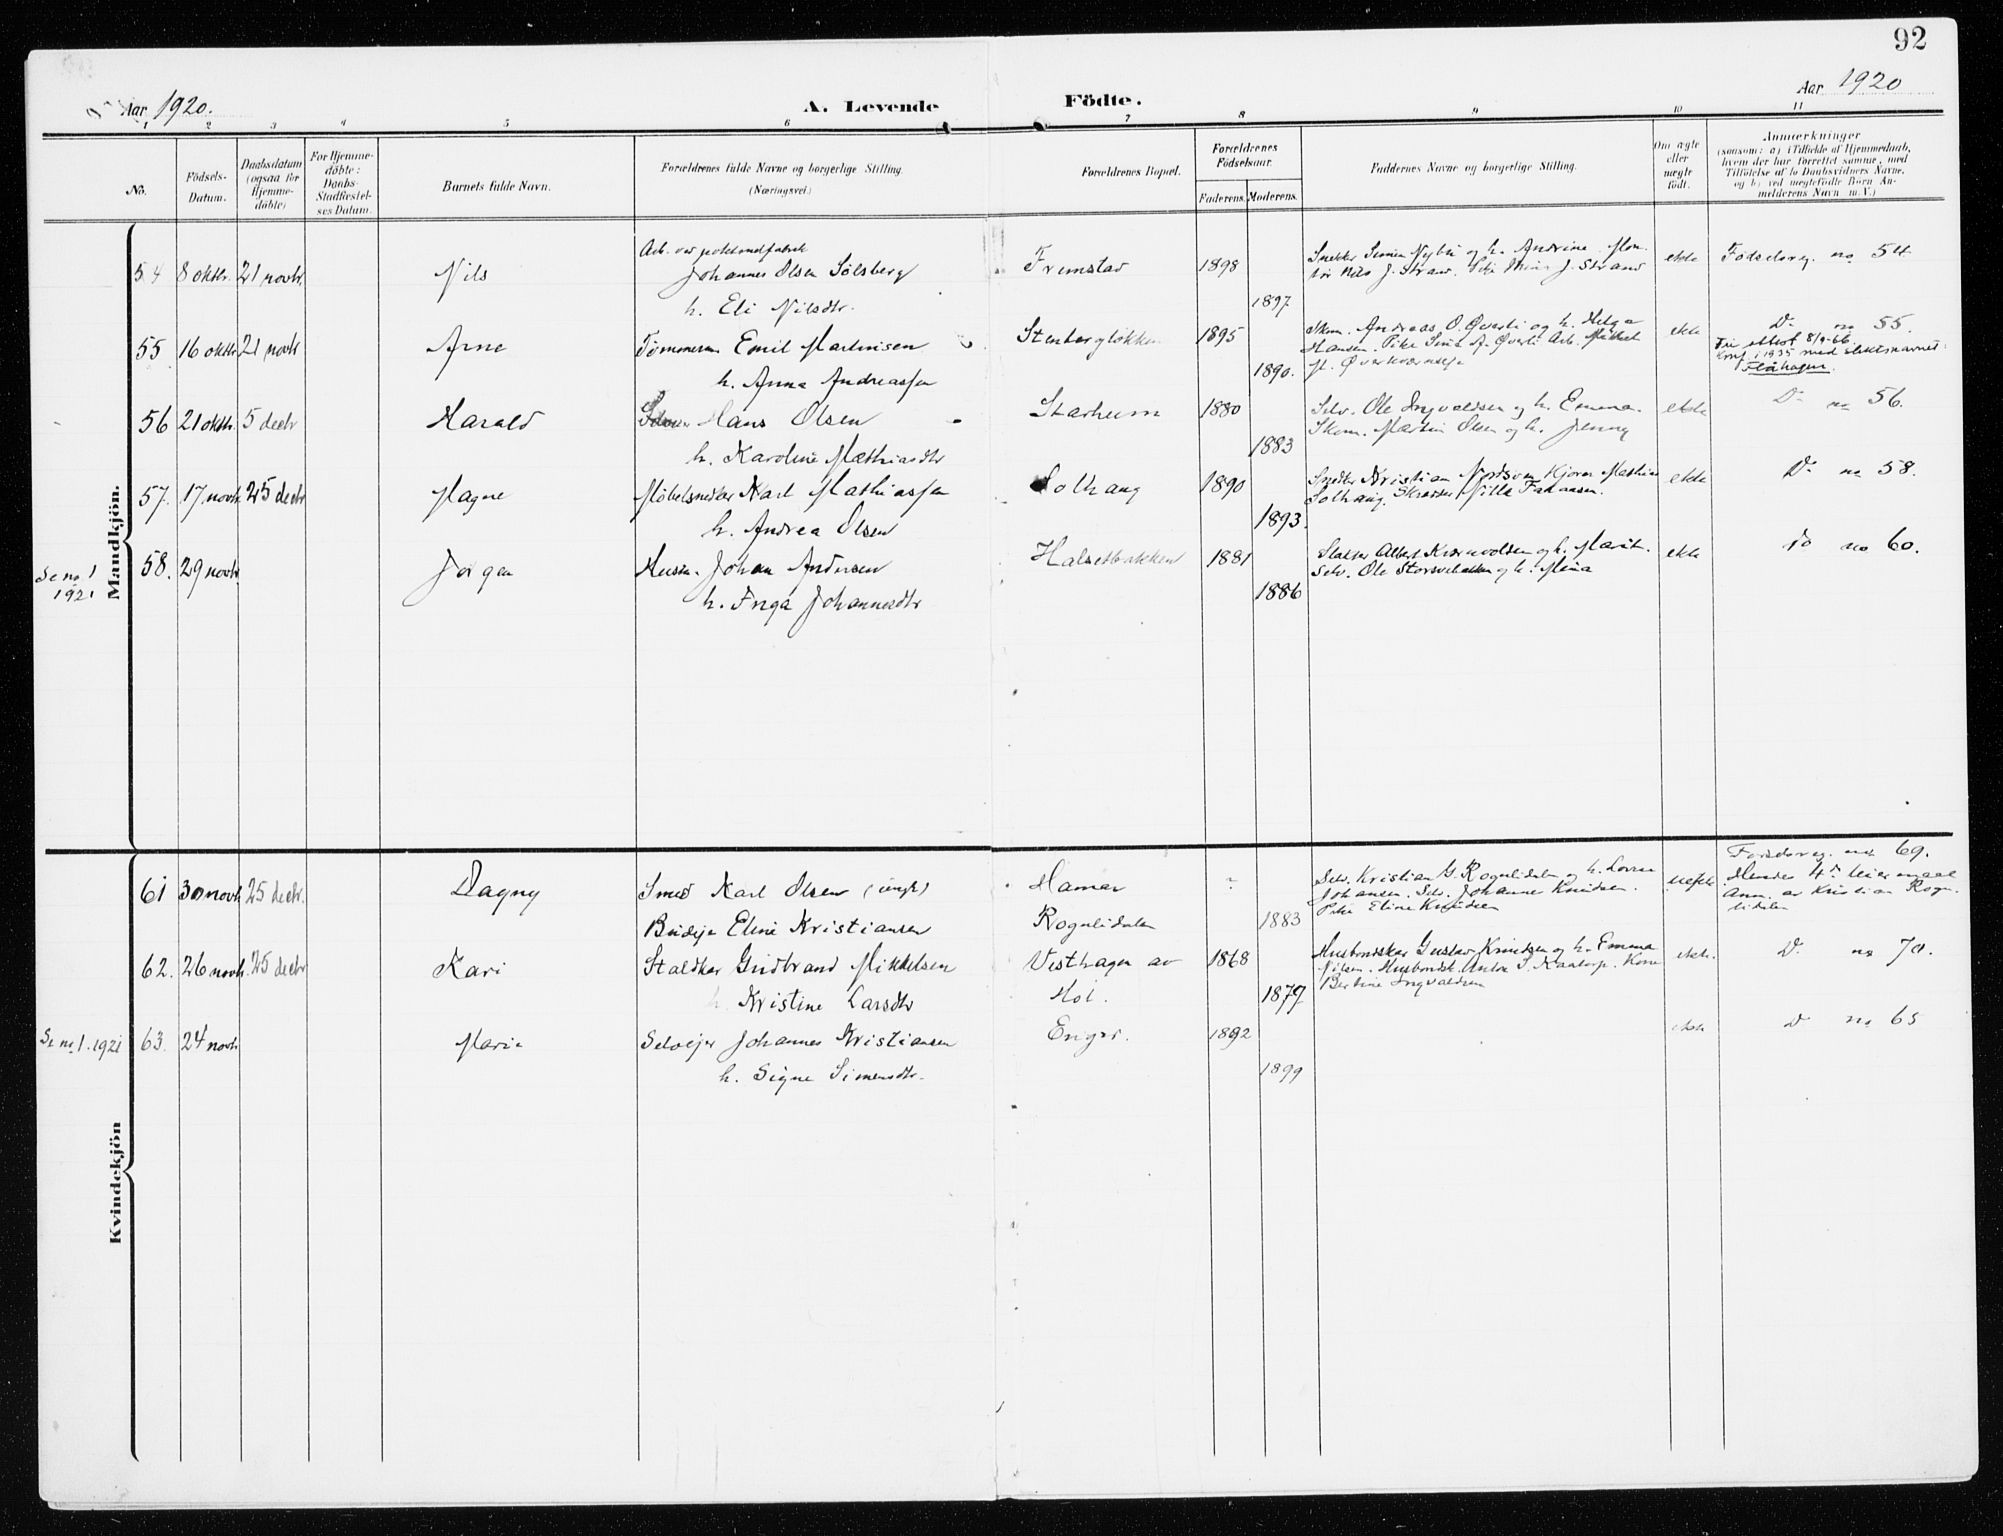 92
Aar 1920.
A. Levende Födte.
Aar 1920
1 2 3 4 5 6 7 8 9 10 11
No.
Födsels-
Datum.
Daabsdatum
(ogsaa for
Hjemme-
döbte)
For Hjemme-
döbte:
Daabs-
Stadfæstel-
ses Datum.
Barnets fulde Navn.
Forældrenes fulde Navne og borgerlige Stilling.
(Næringsvei)
Forældrenes Bopæl.
Forældrenes
Födselsaar.
Faderens. Moderens.
Faddernes Navne og borgerlige Stilling.
Om ægte
eller
uægte
födt.
Anmærkninger
(saasom: a) i Tilfælde af Hjemmedaab,
hvem der har forrettet samme, med
Tilföielse af to Daabsvidners Navne,
og b) ved uægtefödte Börn An-
melderens Navn m. V.)
Mandkjön.
54 8 oktbr. 21 novbr. Nils
Johannes Olsen Sölsberg
h. Eli Nilsdtr.
Fremstad 1898
1897
ekte
Födselsreg. no 54
55 16 oktbr 21 novbr Arne
Tömmerm. Emil Martinisen
h. Anna Andreassen
Stenbergløkken 1895
1890.
Skom. Andreas O. Øverli og h. Helga
Hansen. Pike A. Øverli Arb.
ekte
Do no 55.
8/9-66
konf. i 1935 med slektsnavnet
Flåhagen.
56 21 oktbr. 5 decbr Harald
Hans Olsen
h. Karoline Mathiasdtr
Starheim 1880
1883
Selv. Ole Ingvaldsen og h. Emma.
Skom. Martin Olsen og h. Jenny
ekte
Do no 56.
57. 17 novbr 25 decbr Magne
Møbelsnedker Karl Mathiassen
h. Andrea Olsen
Solhaug 1890
1893.
Snedker Kristian
Solhaug.
ekte
Do no 58.
Se no 1
1921
58. 29 novbr Jørgen
Husm. Johan Andersen
h. Inga Johannesdtr
Halsetbakken 1881
1886
Albert Kværnvolden og h. Marit.
Selv. Ole og h. Mina
ekte
Do no 60.
Kvindekjön
61 30 novbr 25 decbr. Dagny
Smed Karl Olsen (ungk)
Budeje Eline Kristiansen
Hamar ?
Rognlidalen 1883
Selv. Kristian G. Rognlidalen og h. Lovise
Johansen. Selv. Johannes Knudsen.
Pike Eline Knudsen
uekte
Födselsreg. no 69.
Hendes 4de leiermaal
Anm. av Kristian Rogn-
lidalen
62. 26 novbr. 25 decbr Kari
Staldkar Gudbrand Mikkelsen
h. Kristine Larsdtr
Vesthagen av 1868
Hol. 1879
Husbondskar Gustav Knudsen og h. Emma
Nilsen. Husbondsk. Anton S. Kaatorp. Kone
Bertine Ingvaldsen
ekte.
Do no 70.
Se no 1. 1921 63. 24 novbr Marie
Selvejer Johannes Kristiansen
h. Signe Simensdtr.
Enger. 1892
1899
ekte
Do no 65